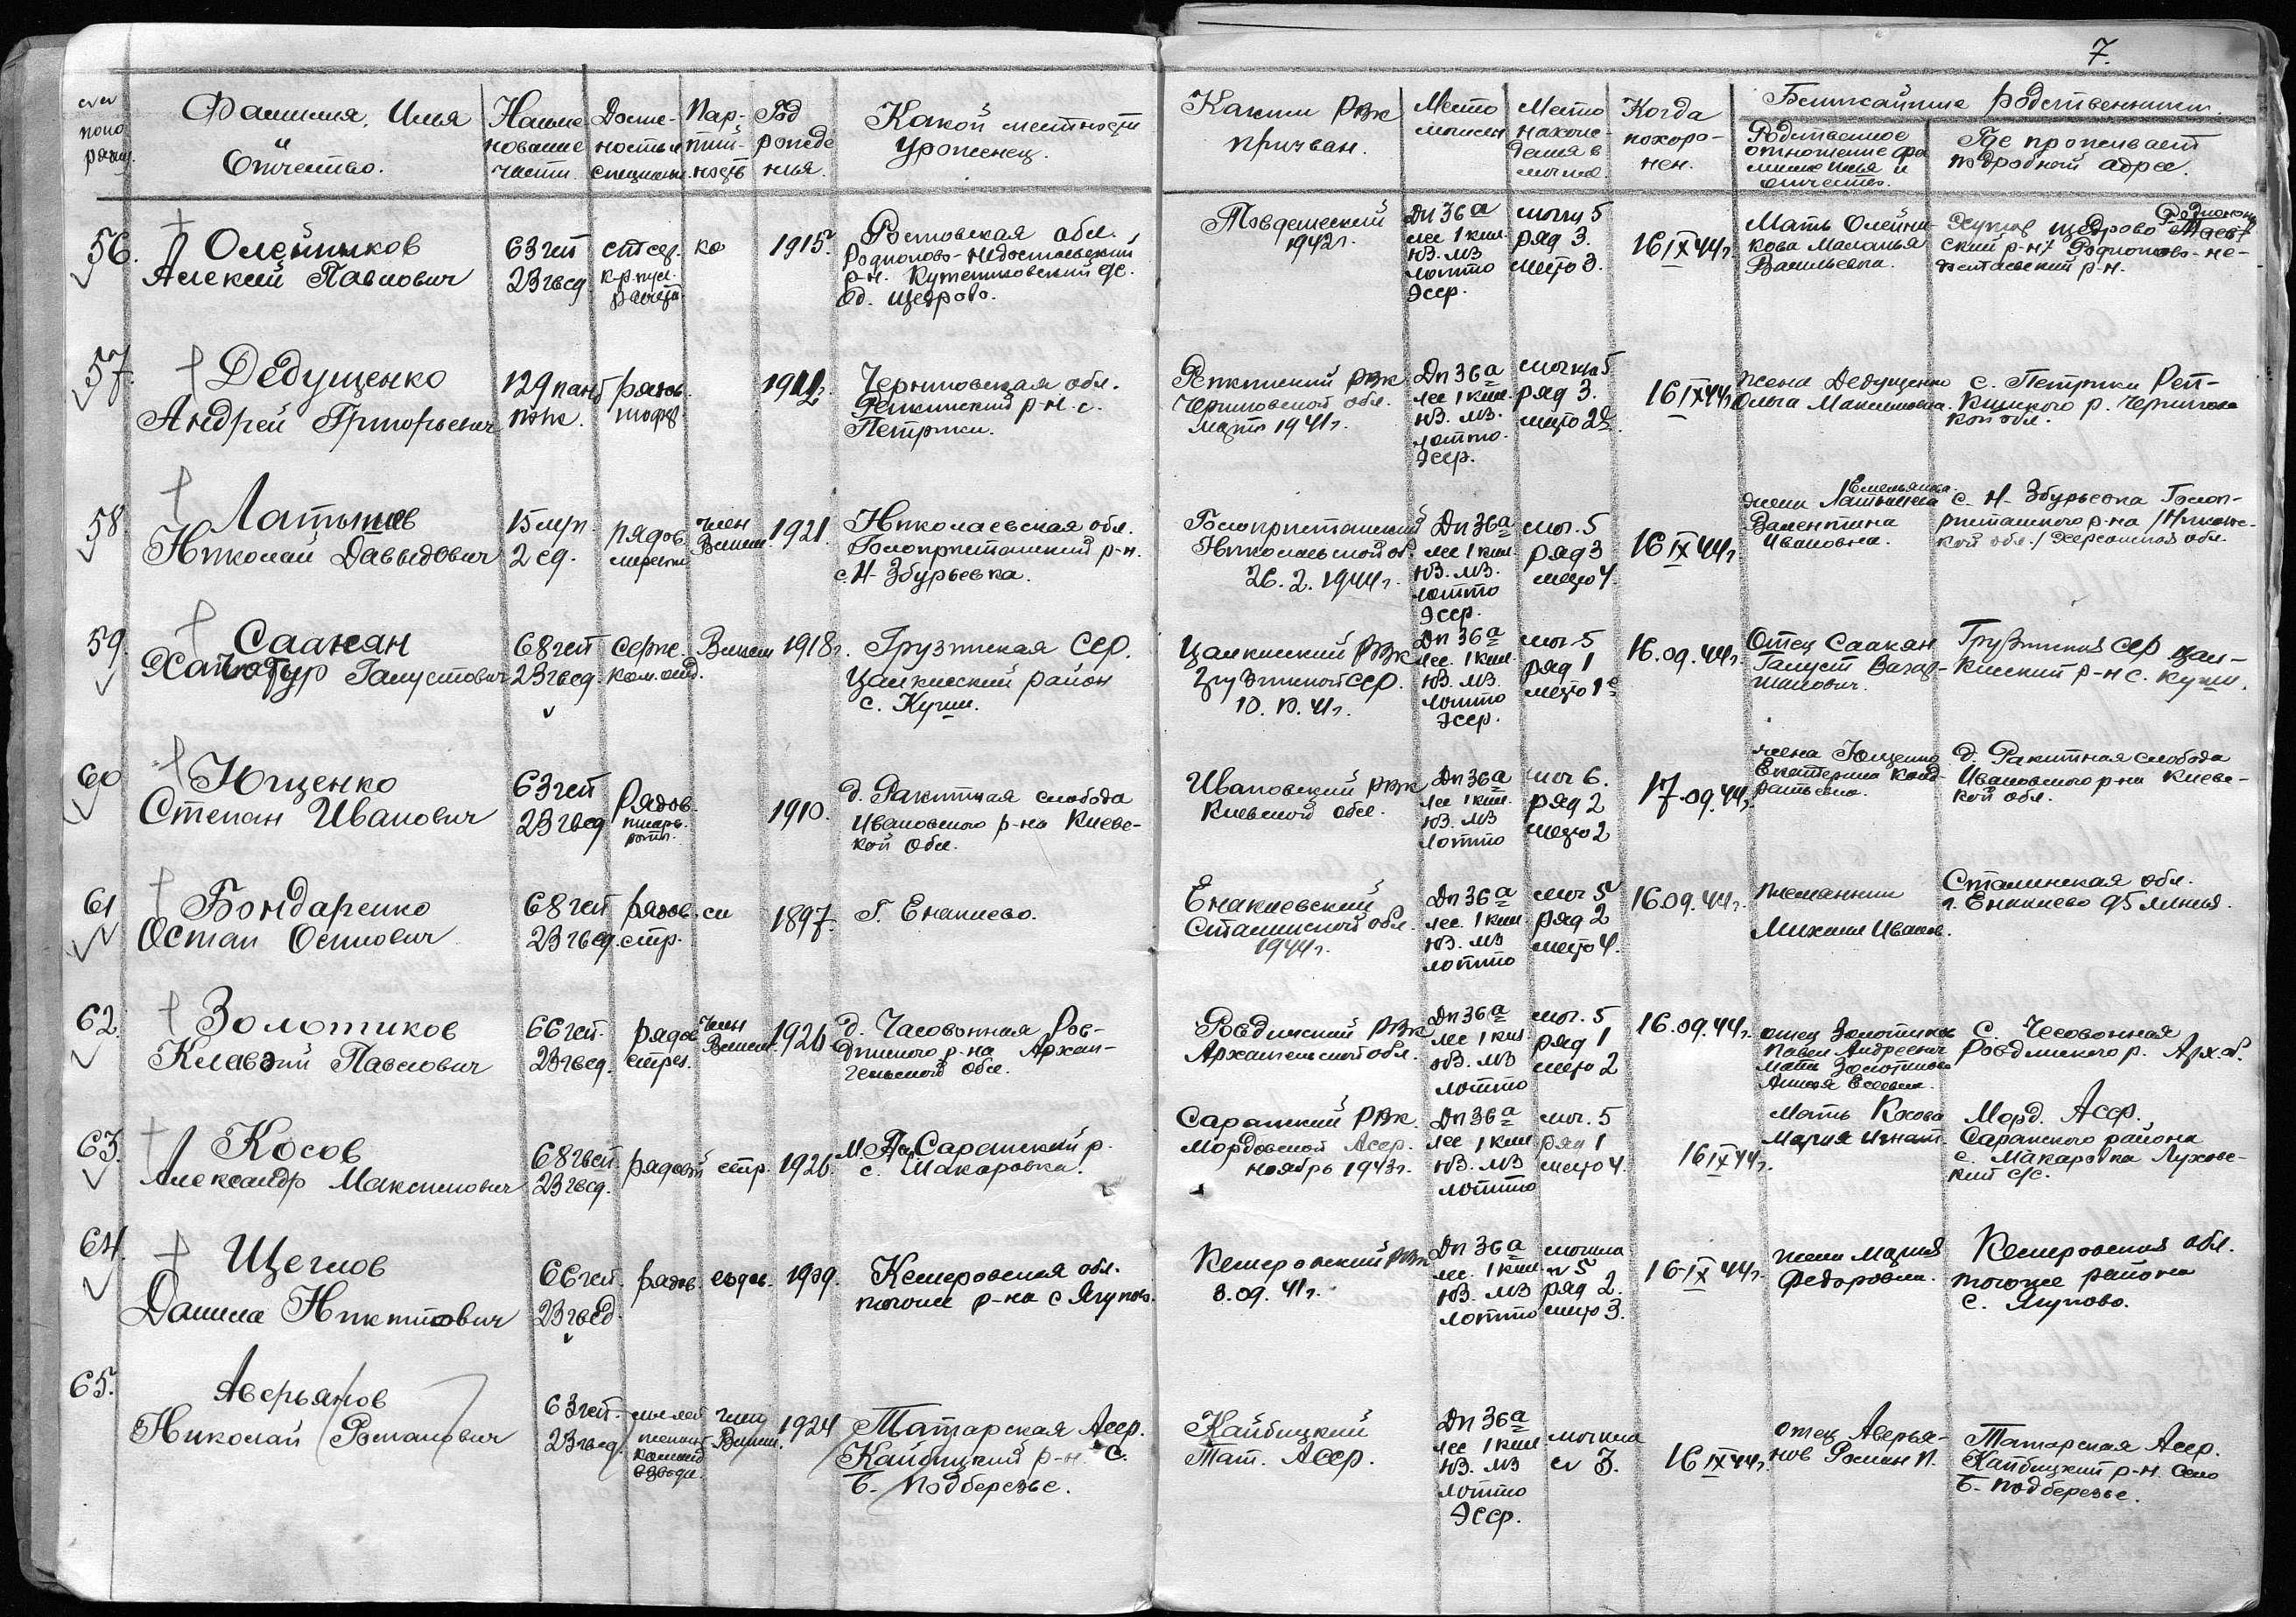 7.
Фамилия, Имя
и
Отчество.
Наиме
нование
части
Долж-
ность и
специальн.
Пар-
тий-
ность
Год
рожде
ния.
Какой местности
уроженец.
Каким РВК
призван.
Место
могилы
Место
нахож-
дения в
могиле
Когда
похоро-
нен.
Ближайшие родственники.
Родственное
отношение фа
милия имя и
отчество.
Где проживает
подробный адрес.
56.
Олейников
Алексей Павлович
63 гсп
23 гвсд
ст. сер.
к-р пул.
расчета
ко
1915.
Ростовская обл.
Родионово-Недостаевский
р-н. Кутейниковский с/с.
Щедрово.
1942 г.
Дп 36а
лес 1 клм.
ЮВ. МЗ
Лотто
Эсср.
могил 5
ряд 3.
место 3.
16 IX 44г
Мать Олейни-
кова Маланья
Васильевна.
Хутор Щедрово
ский р-н Родионово-Не-
р-н.
57.
Дедущенко
Андрей Григорьевич
129
рядов.
Черниговская обл.
Репкинский р-н. с.
Петрики.
Репкинский РВК
Черниговской обл.
1941 г.
Дп 36а
лес 1 клм.
ЮВ. МЗ.
Лотто.
Эсср.
могил 5
ряд 3.
место 2е
16 IX 44г
жена Дедущенко
Ольга Максимовна.
с. Петрики Реп-
кинского р. Чернигов
кой обл.
58.
Латышев
Николай Давыдович
15
2 сд.
рядов
член
Влксм.
1921.
Николаевская обл.
Голопристанский р-н.
с. Н-Збурьевка.
Голопристанский
Николаевской об.
26. 2. 1944 г.
Дп 36а
лес 1 клм.
ЮВ. МЗ.
Лотто
Эсср.
мог. 5
ряд 3
место 4.
16 IX 44г
Емельянова.
жена Латышева
Валентина
Ивановна.
с. Н-Збурьевка Голоп-
ристанского р-на /Николае-
кой обл./ Херсонской обл.
59.
Саакян
Хачатур Галустович
68 гсп
23 гвсд.
серж.
ком. отд.
Влксм
1918 г.
Грузинская Сср.
Цалкинский район
с. Кущи.
Цалкинский РВК
Грузинской сср.
10. 10. 41 г.
Дп 36а
лес. 1 клм.
ЮВ. МЗ.
Лотто
Эсср.
мог. 5
ряд 1
место 1е
16. 09. 44 г.
Отец Саакян
Галуст
Грузинская сср Цал-
кинский р-н с. Кущи.
60
Ющенко
Степан Иванович
63 гсп
23 гвсд
Рядов.
писарь
роты.
1910.
д. Ракитная слобода
Ивановского р-на Киевс-
кой Обл.
Ивановский РВК
Киевской обл.
Дп 36а
лес 1 клм.
ЮВ. МЗ
Лотто
мог 6.
ряд 2
место 2
17.09.44г.
жена Ющенко
Екатерина Конд-
ратьевна.
д. Ракитная слобода
Ивановского р-на Киевс-
кой обл.
61
Бондаренко
Остап Осипович
68 гсп
23 гвсд.
рядов.
стр.
1897.
г. Енакиево.
Енакиевский
Сталинской обл.
1944 г.
Дп 36а
лес. 1 клм
ЮВ. МЗ
Лотто
мог 5
ряд 2
место 4.
16.09.44г.
племянник
Михаил Иванов.
Сталинская обл.
г. Енакиево 95 линия.
62.
Золотиков
Клавдий Павлович
66 гсп.
23 гвсд.
рядов
стрел.
член
Влксм.
1926
д. Часовонная Ров-
динского р-на Архан-
гельской Обл.
Ровдинский РВК
Архангельской обл.
Дп 36а
лес 1 клм
ЮВ. МЗ
Лотто
мог. 5
ряд 1
место 2
16.09.44г.
отец Золотиков
Павел Андреевич
мать Золотикова
с. Чесовонная
Ровдинского р. Арх об.
63.
Косов
Александр Максимович
68 гвсп.
23 гвсд.
рядовой
стр.
1926.
Саранский р.
с. Макаровка.
Саранский РВК.
Мордовской Асср.
ноябрь 1943 г.
Дп 36а
лес 1 клм
ЮВ. МЗ
Лотто
мог. 5
ряд 1
место 4.
16 IX 44г.
Мать Косова
Мария Игнат.
Морд. Асср.
Саранского района
с. Макаровка Луховс-
кий с/с.
64.
Щеглов
Данила Никитович
66 гсп.
23 гвсд.
рядов.
ездов.
1909.
Кемеровская обл.
р-на с Ягуново.
Кемеровский РВК
3. 09. 41 г.
Дп 36а
лес. 1 клм
ЮВ. МЗ
Лотто
могила
№ 5
ряд 2.
место 3.
16-IX 44г.
жена Мария
Федоровна.
Кемеровская обл.
района
с. Ягуново.
65.
Аверьянов
Николай Романович
63 гсп.
23 гвсд.
команд
взвода.
член
Влксм.
1924
Татарская Асср.
Кайбицкий р-н с.
Б- Подберезье.
Кайбицкий
Тат. Асср.
Дп 36а
лес 1 клм.
ЮВ. МЗ
Лотто
Эсср.
могила
№ 3.
16 IX 44г.
отец Аверья-
нов Роман И.
Татарская Асср.
Кайбицкий р-н. Село
Б- Подберезье.